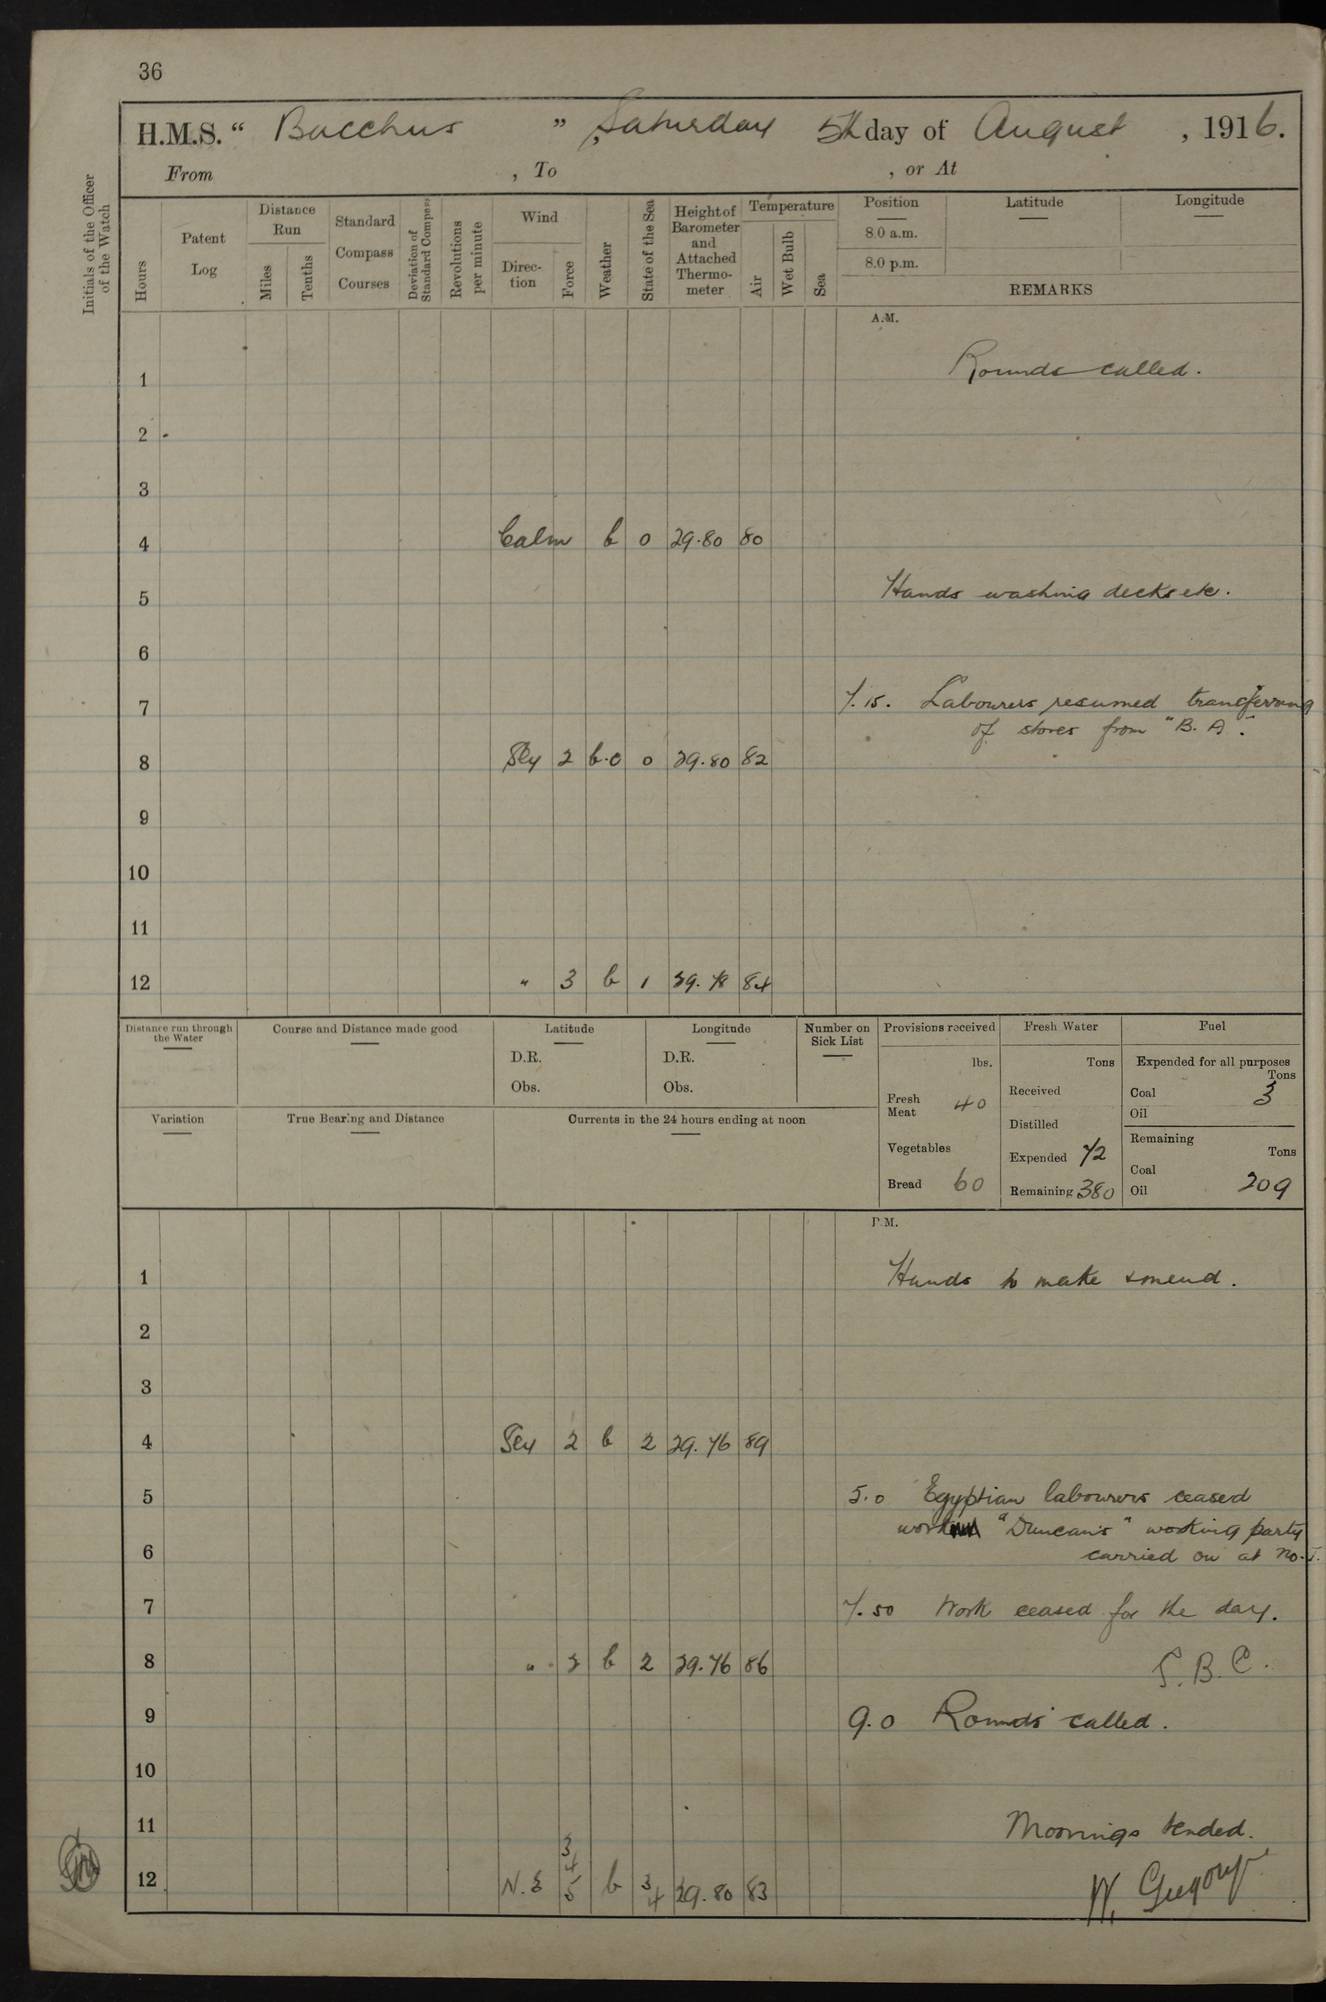 36
H.M.S. “ Bacchus ” , Saturday 5th day of August , 1916.
From , To , or At
Initials of the Officer of the Watch
Hours
Patent Log
Distance Run
Miles
Tenths
Standard Compass Courses
Deviation of Standard Compass
Revolutions per minute
Wind
Direction
Force
Weather
State of the Sea
Height of Barometer and Attached Thermometer
Temperature
Air
Wet Bulb
Sea
Position Latitude Longitude
8.0 a.m.
8.0 p.m.
REMARKS
A.M.
1 Rounds called.
2
3
4 Calm b 0 29.80 80
5 Hands washing decks etc.
6
7 7.15. Labourers resumed transferring
of stores from "B.A".
8 Sly 2 b.c 0 29.80 82
9
10
11
12 " 3 b 1 29.78 84
Distance run through the Water
Course and Distance made good
Latitude
D.R.
Obs.
Longitude
D.R.
Obs.
Number on Sick List
Variation
True Bearing and Distance
Currents in the 24 hours ending at noon
Provisions received
lbs.
Fresh Meat 40
Vegetables
Bread 60
Fresh Water
Tons
Received
Distilled
Expended 72
Remaining 380
Fuel
Expended for all purposes
Tons
Coal 3
Oil
Remaining
Tons
Coal
Oil 209
P.M.
1 Hands to make & mend.
2
3
4 Sly 2 b 2 29.76 89
5 5.0 Egyptian labourers ceased
work "Duncan's" working party
6 carried on at No. 
7 7.50 Work ceased for the day.
8 " 2 b 2 29.76 86
S.B.C.
9 9.0 Rounds called.
10
11 Moorings tended.
12 N.E 3 4 5 b 3 4 29.80 83
W. Gregory